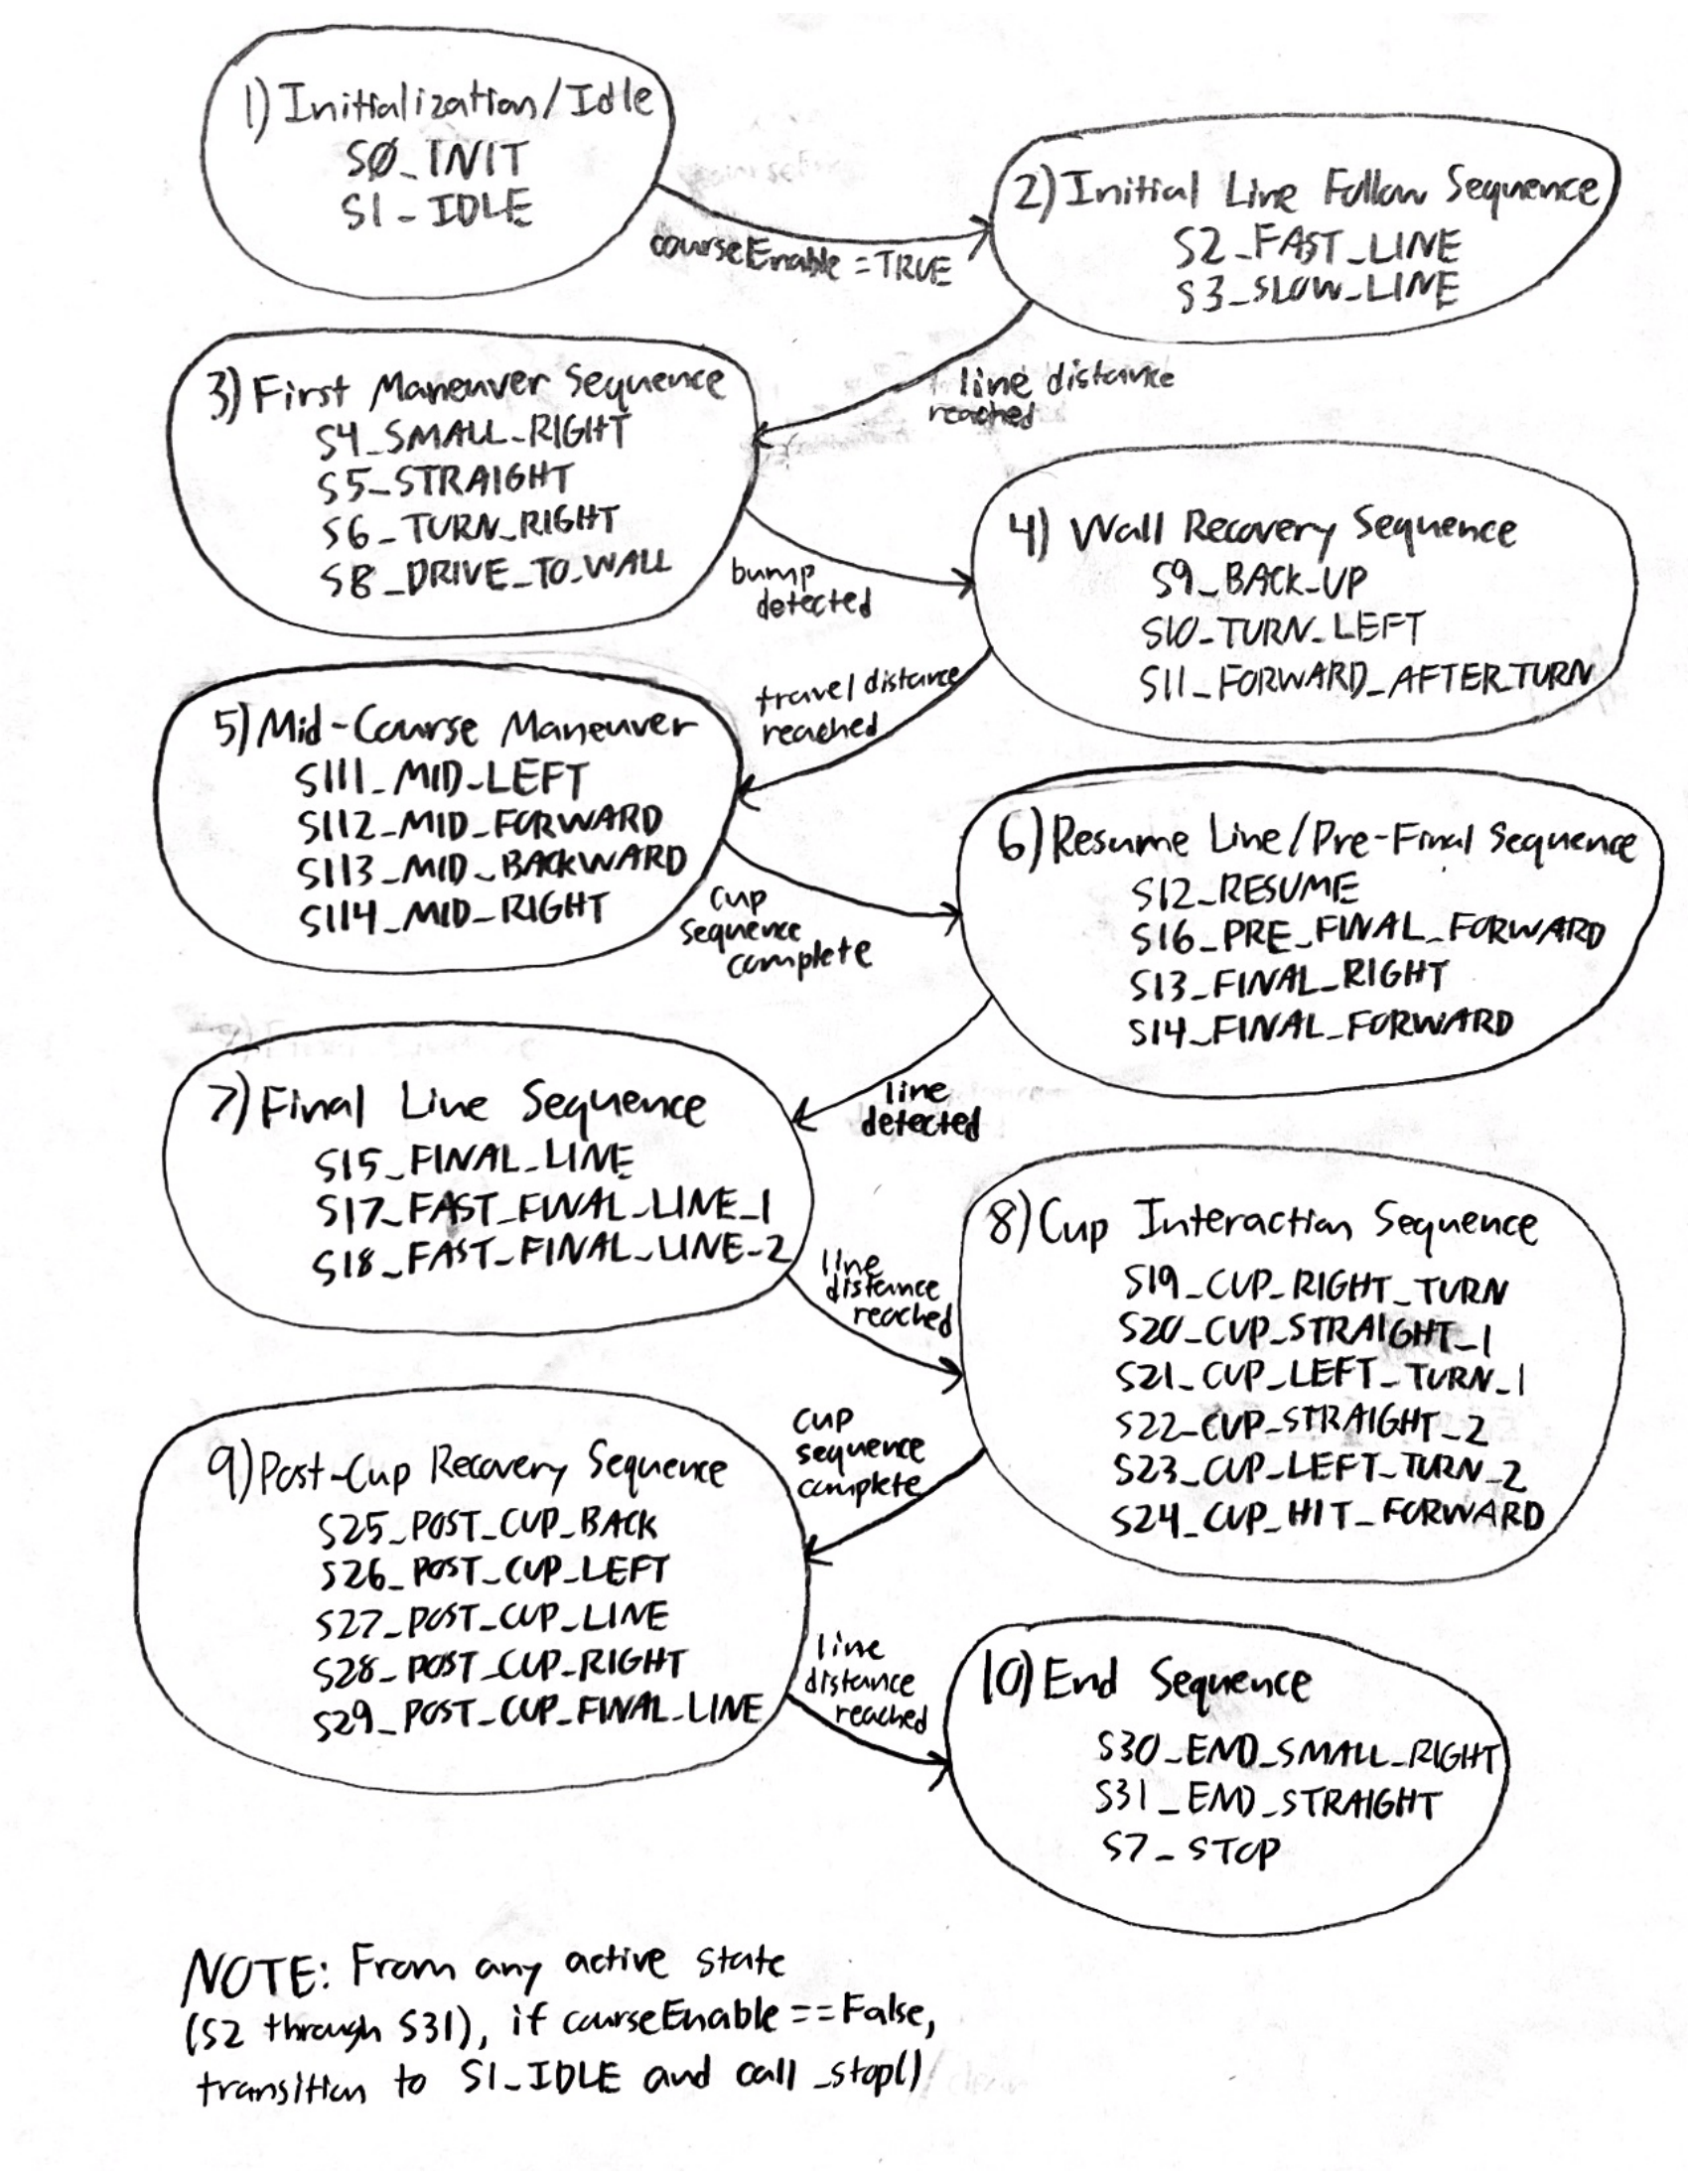 1) Initialization/Idle
SØ_INIT
S1_IDLE
courseEnable = TRUE
2) Initial Line Follow Sequence
S2_FAST_LINE
S3_SLOW_LINE
line distance
reached
3) First Maneuver Sequence
S4_SMALL_RIGHT
S5_STRAIGHT
S6_TURN_RIGHT
S8_DRIVE_TO_WALL
bump
detected
4) Wall Recovery Sequence
S9_BACK_UP
S10_TURN_LEFT
S11_FORWARD_AFTER_TURN
travel distance
reached
5) Mid-Course Maneuver
S111_MID_LEFT
S112_MID_FORWARD
S113_MID_BACKWARD
S114_MID_RIGHT
cup
sequence
complete
6) Resume Line/Pre-Final Sequence
S12_RESUME
S16_PRE_FINAL_FORWARD
S13_FINAL_RIGHT
S14_FINAL_FORWARD
line
detected
7) Final Line Sequence
S15_FINAL_LINE
S17_FAST_FINAL_LINE_1
S18_FAST_FINAL_LINE_2
line
distance
reached
8) Cup Interaction Sequence
S19_CUP_RIGHT_TURN
S20_CUP_STRAIGHT_1
S21_CUP_LEFT_TURN_1
S22_CUP_STRAIGHT_2
S23_CUP_LEFT_TURN_2
S24_CUP_HIT_FORWARD
cup
sequence
complete
9) Post-Cup Recovery Sequence
S25_POST_CUP_BACK
S26_POST_CUP_LEFT
S27_POST_CUP_LINE
S28_POST_CUP_RIGHT
S29_POST_CUP_FINAL_LINE
line
distance
reached
10) End Sequence
S30_END_SMALL_RIGHT
S31_END_STRAIGHT
S7_STOP
NOTE: From any active state
(S2 through S31), if courseEnable == False,
transition to S1_IDLE and call _stop()